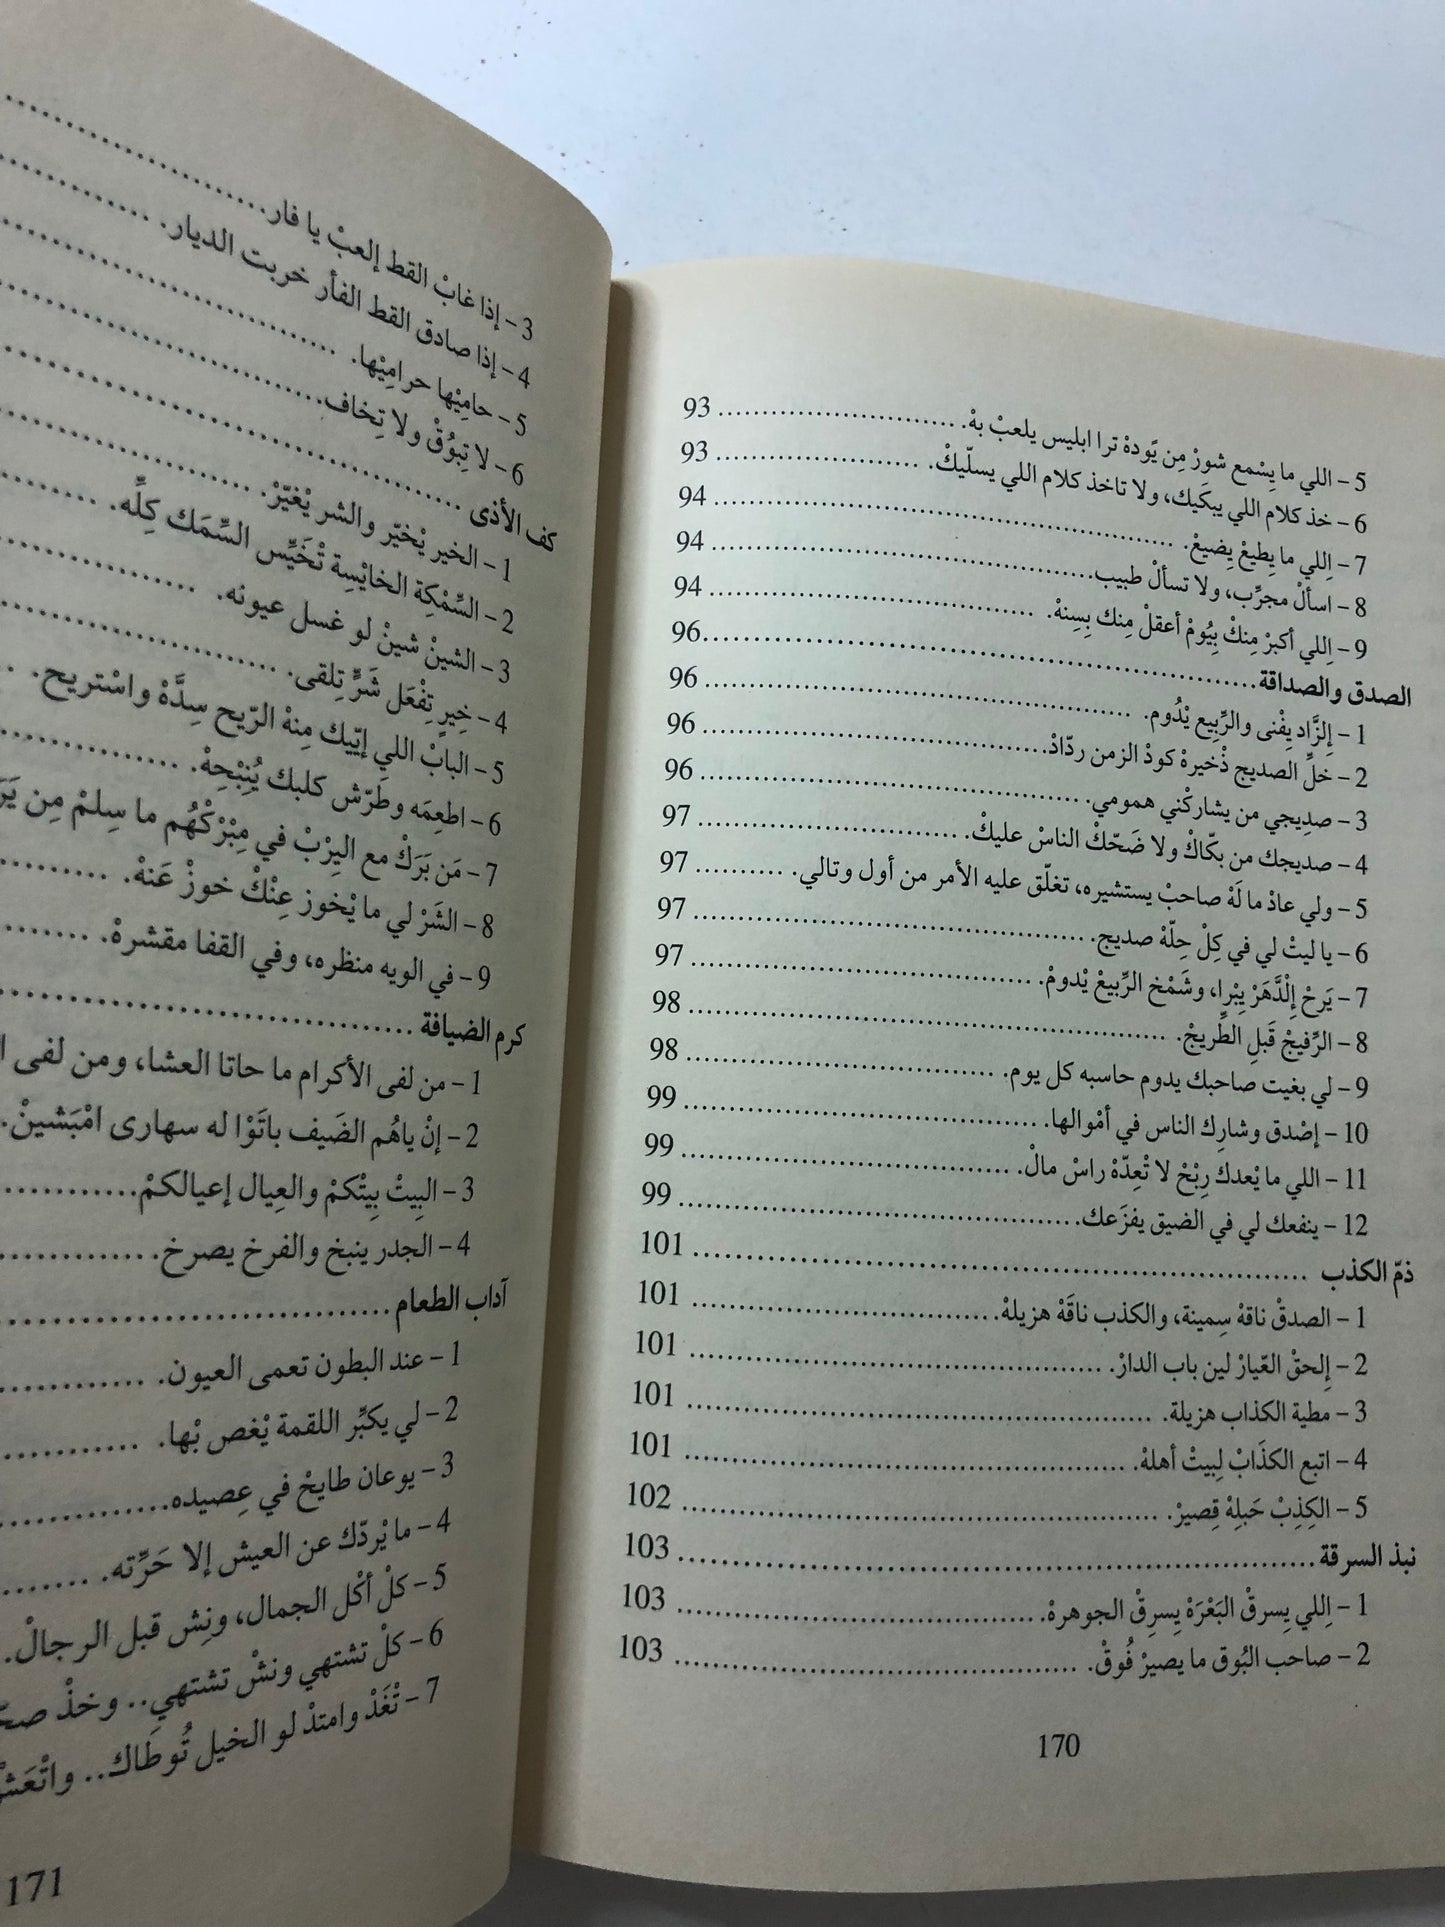 5 – اللي ما يِسْمع شورْ مِن يًودهْ ترا ابليس يلعبْ بهْ. .......................... 93
6 – خذ كلام اللي يبكَيك، ولا تاخذ كلام اللي يسلّيكْ. .................... 93
7 – اِللي ما يِطيعْ يِضيعْ. .................................................. 94
8 – اسألْ مجرِّب، ولا تسألْ طبيب.......................................... 94
9 – اِللي أكبرْ مِنكْ بِيُومْ أعقلْ مِنك بِسِنهْ. ................................ 94
الصدق والصداقة........................................................... 96
1 – إِلزَّاد يِفْنى والرِّبيع يْدُوم. ............................................ 96
2 – خلِّ الصديج ذْخيرهْ كودْ الزمن ردّادْ................................... 96
3 – صدِيجي من يشاركْني همومي. ........................................ 96
4 – صديجك من بكّاكْ ولا ضَحّكْ الناسْ عليكْ. ........................... 97
5 – ولي عاذْ ما لَهْ صاحبْ يستشيره، تغلّق عليه الأمر من أول وتالي. .......... 97
6 – يا ليتْ لي في كِلْ حِلّهْ صديج. ....................................... 97
7 – يَرحْ إِلْدَّهَرْ يِبْرا، وشَمْخ الرِّبيعْ يْدومْ. ................................. 97
8 – الرِّفيجْ قَبلِ الطِّريجْ. .................................................. 98
9 – لي بغيت صاحبك يدوم حاسبه كل يوم. ................................ 98
10 – إصْدق وشارِك الناس في أمْوالها. .................................... 99
11 – اللي ما يْعدك رِبْحْ لا تْعِدّهْ راسْ مالْ. ................................ 99
12 – ينفعك لي في الضيق يفزَعك. ........................................ 99
ذمّ الكذب ................................................................ 101
1 – الصدقْ ناقهْ سِمينة، والكذب ناقَهْ هزيلهْ............................... 101
2 – إِلحقْ العّيارْ لين باب الدارْ. .......................................... 101
3 – مطية الكذاب هزيلة. ................................................. 101
4 – اتبع الكذَابْ لِبيتْ أهلهْ. .............................................. 101
5 – الكِذِبْ حَبلِهْ قِصيرْ. .................................................. 102
نبذ السرقة................................................................ 103
1 – اِللي يِسرقْ البَعْرَهْ يِسرِقْ الجوهرهْ. .................................... 103
2 – صاحب البُوق ما يصيرْ فُوقْ. ......................................... 103
170
3 – إذا غابْ القط إلعبْ يا فار..........................
4 – إذا صادق القط الفأر خربت الديار. ................
5 – حامِيْها حرامِيْها. ................................
6 – لا تِبوُقْ ولا تِخاف..............................
كف الأذى ......................................
1 – الخير يْخيّر والشر يْغيّرْ. .........................
2 – السِّمْكِة الخايْسِة تْخَيِّس السِّمَك كِلِّه. .......
3 – الشينْ شينْ لو غسل عيونه. ......................
4 – خِيرٍ تِفْعَل شَرٍّ تِلقى. .........................
5 – البابْ اللي إيّيك مِنهْ الرّيح سِدَّهْ واسْتريح. ..
6 – اطعِمَه وطَرّش كلبك يُنِبْحِهْ. ...............
7 – مَن بَرَكْ مع اليِرْبْ في مِبْرَكْهُم ما سِلمْ مِن
8 – الشَرْ لي ما يْخوز عِنْكْ خوزْ عَنهْ. .........
9 – في الويه منظره، وفي القفا مقشرهْ. .......
كرم الضيافة ....................................
1 – من لفى الأكرام ما حاتا العشا، ومن لفى
2 – إنْ ياهُم الضَيف باتَوْا له سهارى امْبَشينْ.
3 – البِيتْ بِيتْكمْ والعِيال إعيالكمْ............
4 – الجدر ينبخ والفرخ يصرخ. .............
آداب الطعام ..................................
1 – عند البطون تعمى العيون. ............
2 – لي يكبِّر اللقمة يْغص بْها. ............
3 – يوعان طايحْ في عِصيده...............
4 – ما يْردّك عن العيش إلا حَرِّته. ........
5 – كلْ أكْل الجمال، ونِش قبل الرجالْ.
6 – كلْ تشتهي ونشْ تشتهي.. وخذْ
7 – تْغَذْ وامتذْ لو الخيل تُوطَاك..
171